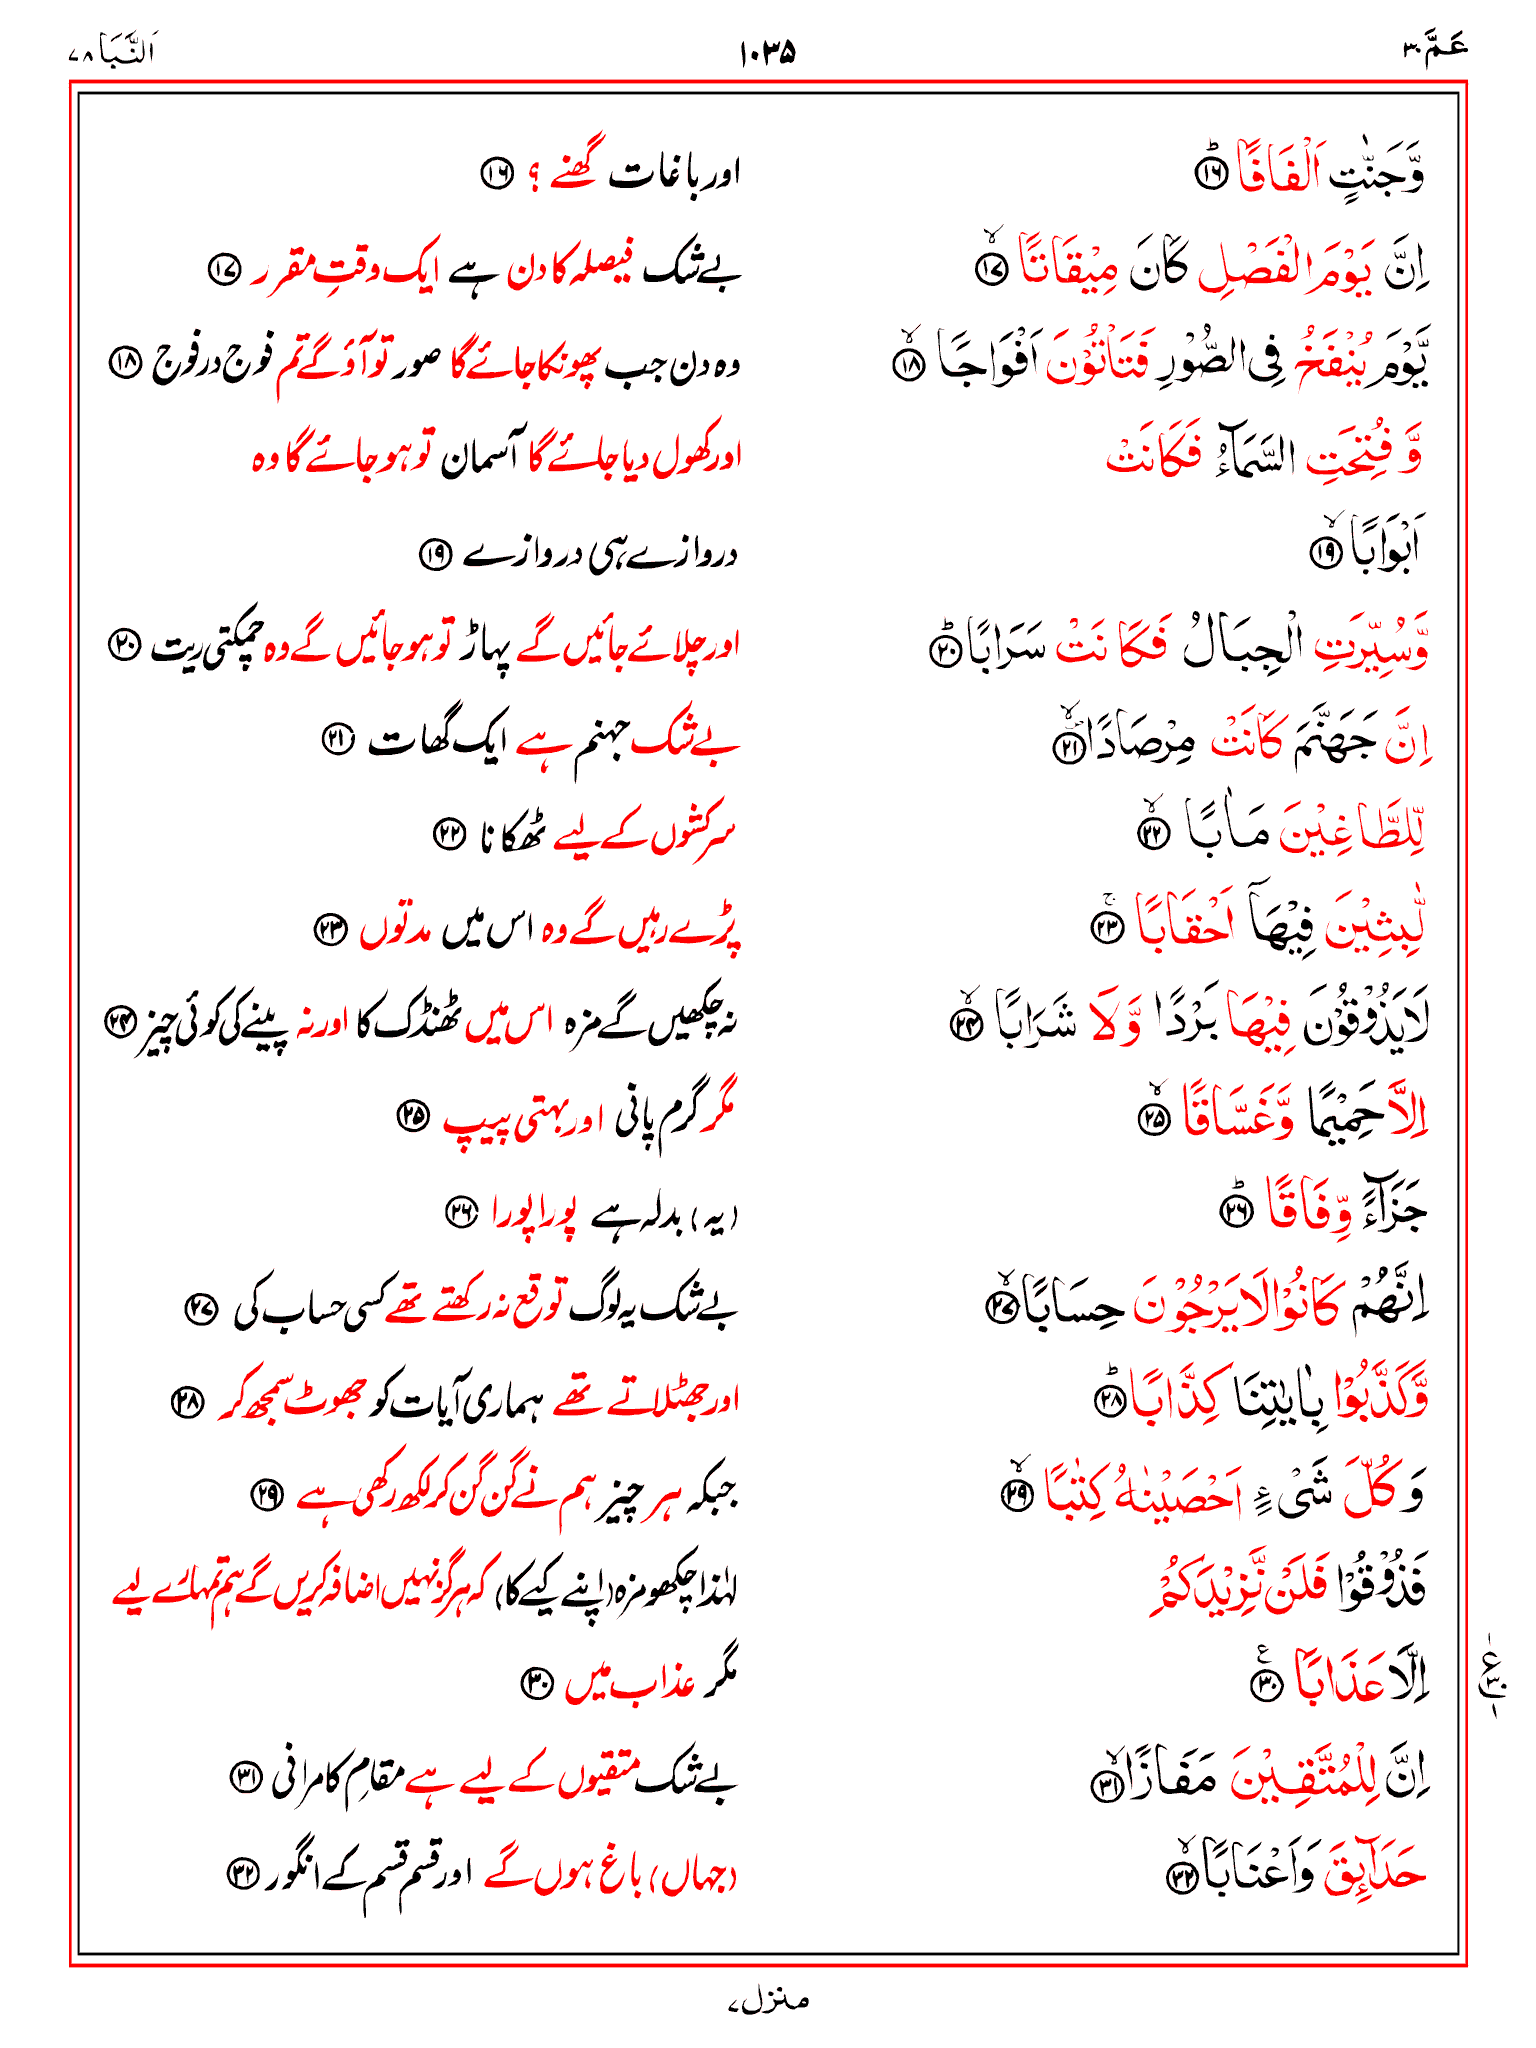 عَمَّ ۳۰ ۱۰۳۵ اَلنَّبَا ۷۸
وَّجَنّٰتٍ اَلْفَافًا ؕ﴿۱۶﴾ اور باغات گھنے ؟ ﴿۱۶﴾
اِنَّ يَوْمَ الْفَصْلِ كَانَ مِيْقَاتًا ۙ﴿۱۷﴾ بے شک فیصلہ کا دن ہے ایک وقتِ مقرر ﴿۱۷﴾
يَّوْمَ يُنْفَخُ فِى الصُّوْرِ فَتَاْتُوْنَ اَفْوَاجًا ۙ﴿۱۸﴾ وہ دن جب پھونکا جائے گا صور تو آؤ گے تم فوج در فوج ﴿۱۸﴾
وَّ فُتِحَتِ السَّمَآءُ فَكَانَتْ اور کھول دیا جائے گا آسمان تو ہو جائے گا وہ
اَبْوَابًا ۙ﴿۱۹﴾ دروازے ہی دروازے ﴿۱۹﴾
وَّسُيِّرَتِ الْجِبَالُ فَكَانَتْ سَرَابًا ؕ﴿۲۰﴾ اور چلائے جائیں گے پہاڑ تو ہو جائیں گے وہ چمکتی ریت ﴿۲۰﴾
اِنَّ جَهَنَّمَ كَانَتْ مِرْصَادًا ۙ﴿۲۱﴾ بے شک جہنم ہے ایک گھات ﴿۲۱﴾
لِّلطَّاغِيْنَ مَاٰبًا ۙ﴿۲۲﴾ سرکشوں کے لیے ٹھکانا ﴿۲۲﴾
لّٰبِثِيْنَ فِيْهَاۤ اَحْقَابًا ۚ﴿۲۳﴾ پڑے رہیں گے وہ اس میں مدتوں ﴿۲۳﴾
لَا يَذُوْقُوْنَ فِيْهَا بَرْدًا وَّلَا شَرَابًا ۙ﴿۲۴﴾ نہ چکھیں گے مزہ اس میں ٹھنڈک کا اور نہ پینے کی کوئی چیز ﴿۲۴﴾
اِلَّا حَمِيْمًا وَّغَسَّاقًا ۙ﴿۲۵﴾ مگر گرم پانی اور بہتی پیپ ﴿۲۵﴾
جَزَآءً وِّفَاقًا ؕ﴿۲۶﴾ (یہ) بدلہ ہے پورا پورا ﴿۲۶﴾
اِنَّهُمْ كَانُوْا لَا يَرْجُوْنَ حِسَابًا ۙ﴿۲۷﴾ بے شک یہ لوگ توقع نہ رکھتے تھے کسی حساب کی ﴿۲۷﴾
وَّكَذَّبُوْا بِاٰيٰتِنَا كِذَّابًا ؕ﴿۲۸﴾ اور جھٹلاتے تھے ہماری آیات کو جھوٹ سمجھ کر ﴿۲۸﴾
وَكُلَّ شَىْءٍ اَحْصَيْنٰهُ كِتٰبًا ۙ﴿۲۹﴾ جبکہ ہر چیز ہم نے گن گن کر لکھ رکھی ہے ﴿۲۹﴾
فَذُوْقُوْا فَلَنْ نَّزِيْدَكُمْ لہٰذا چکھو مزہ (اپنے کیے کا) کہ ہرگز نہیں اضافہ کریں گے ہم تمہارے لیے
اِلَّا عَذَابًا ﴿۳۰﴾ ع مگر عذاب میں ﴿۳۰﴾
اِنَّ لِلْمُتَّقِيْنَ مَفَازًا ۙ﴿۳۱﴾ بے شک متقیوں کے لیے ہے مقامِ کامرانی ﴿۳۱﴾
حَدَآئِقَ وَاَعْنَابًا ۙ﴿۳۲﴾ (جہاں) باغ ہوں گے اور قسم قسم کے انگور ﴿۳۲﴾
۱ ع ۳۰ ۱
منزل ۷